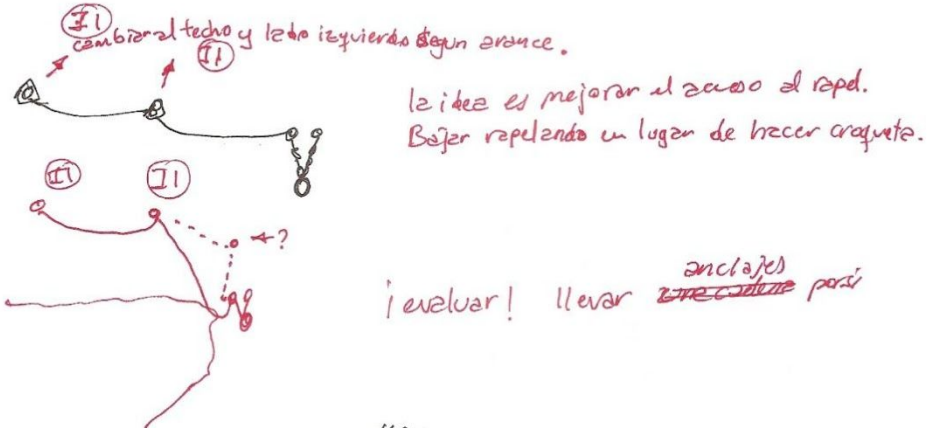 I1
cambiar al techo y lado izquierdo según avance.
I1
la idea es mejorar el acceso al rapel.
Bajar rapelando en lugar de hacer croqueta.
I1
I1
?
anclajes
¡evaluar! llevar una cadena porsi